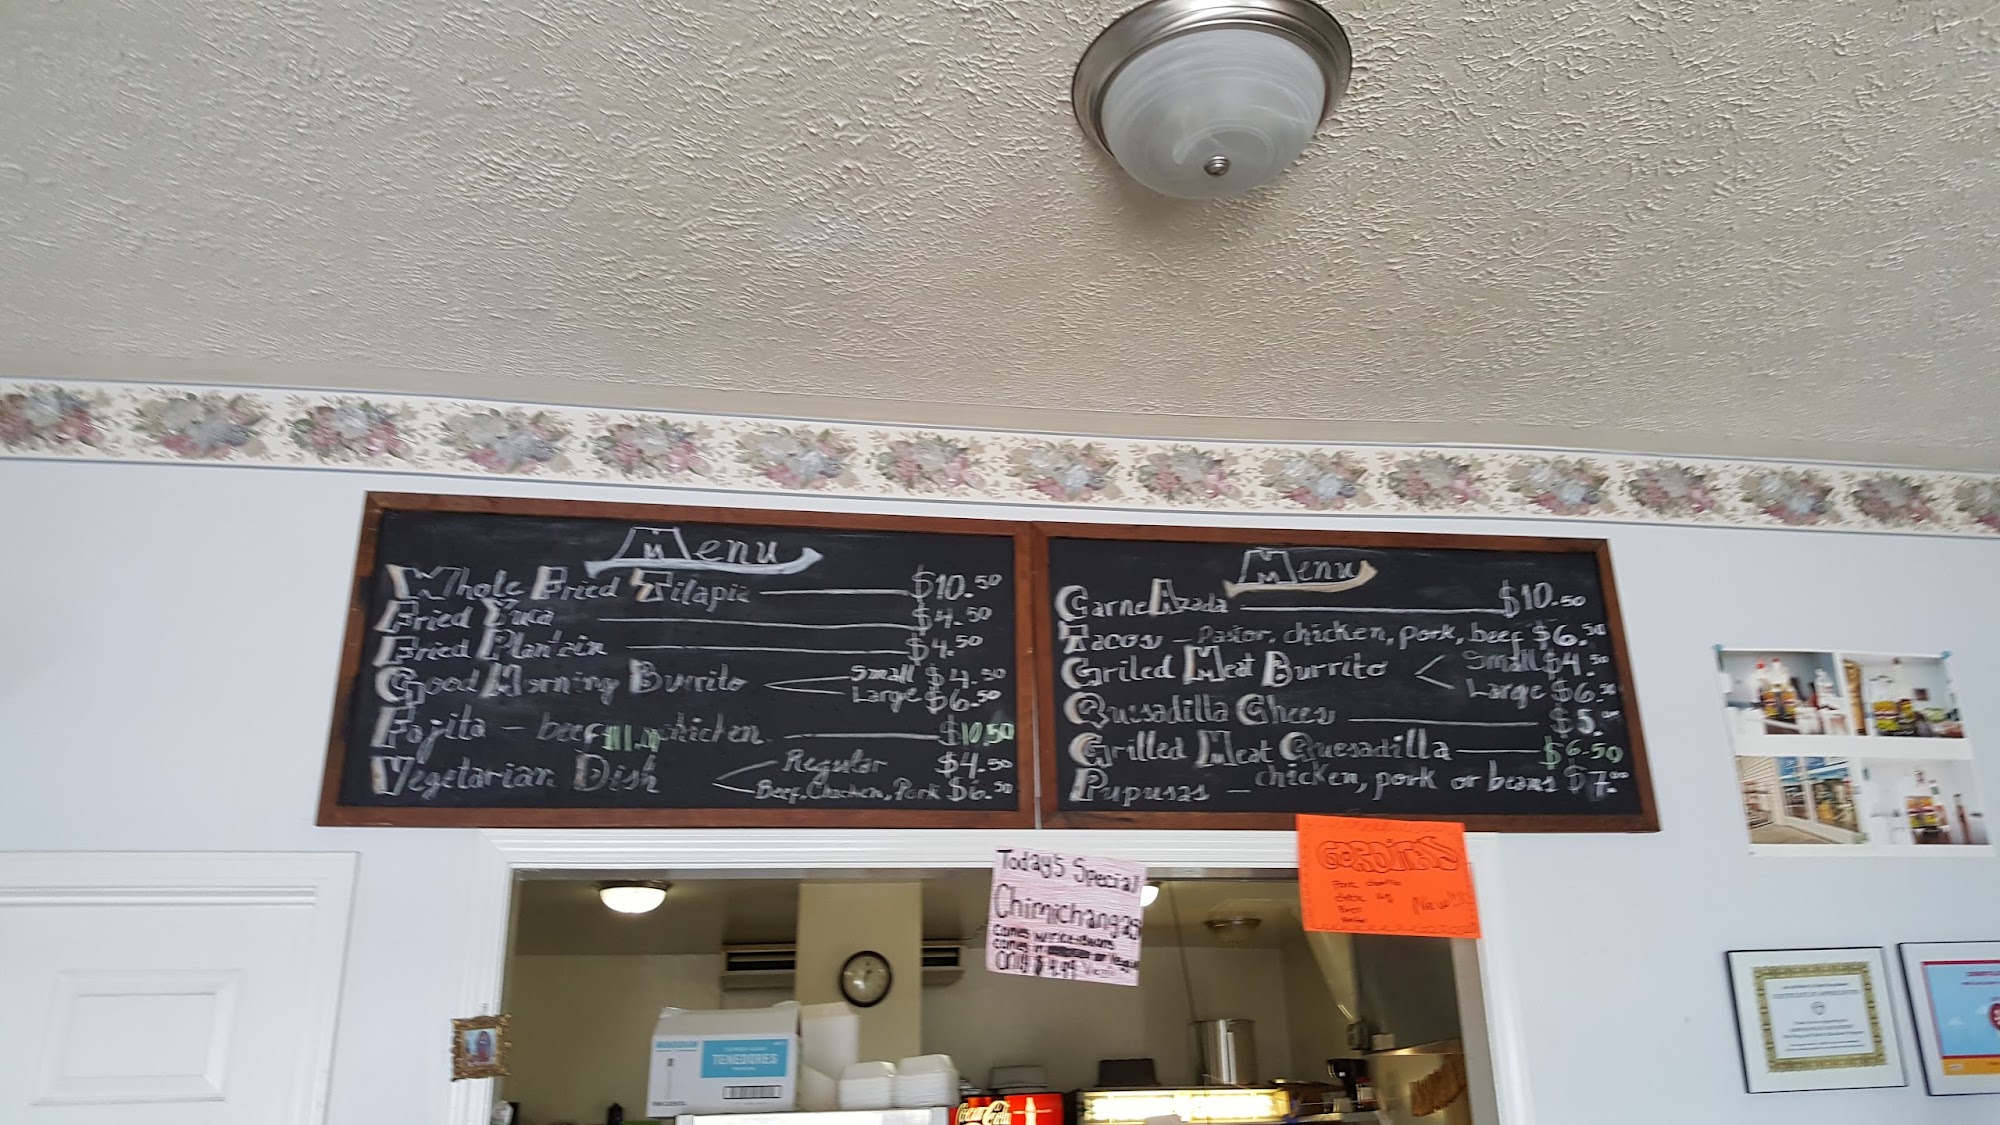 Menu
Whole Fried Tilapia $10.50
Fried Yuca $4.50
Fried Plantain $4.50
Good Morning Burrito Small $4.50
Large $6.50
Fajita - beef chicken $10.50
Vegetarian Dish Regular $4.50
Beef, Chicken, Pork $6.50
Menu
Carne Azada $10.50
Tacos - Pastor, chicken, pork, beef $6.50
Griled Meat Burrito Small $4.50
Large $6.50
Quesadilla Chees $5.00
Grilled Meat Quesadilla $6.50
Pupusas - chicken, pork or beans $7.00
Today's Special
Chimichangas
Only $
GORDITAS
New!!!
TENEDORES
Coca-Cola